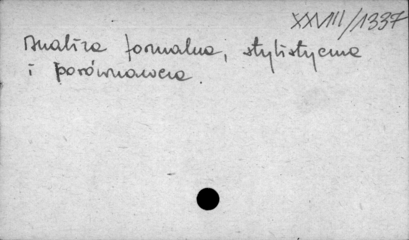 XXVIII/1337
Analiza formalna, stylistyczna
i porównawcza.